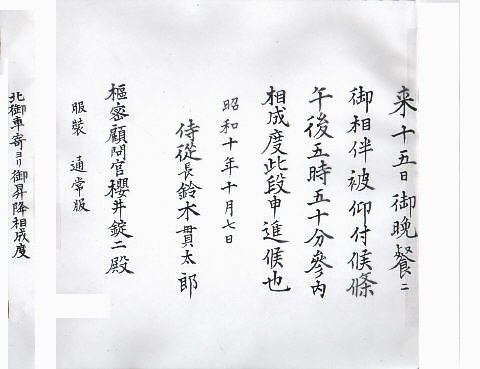 来十五日御晩餐ニ
御相伴被仰付候條
午後五時五十分參内
相成度此段申進候也
昭和十年十月七日
侍從長鈴木貫太郎
樞密顧問官櫻井錠二殿
服裝 通常服
北御車寄ヨリ御昇降相成度